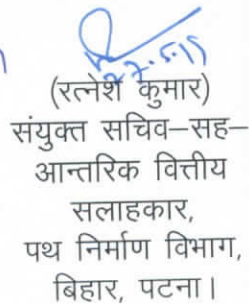 27.5.15
(रत्नेश कुमार)
संयुक्त सचिव–सह–
आन्तरिक वित्तीय
सलाहकार,
पथ निर्माण विभाग,
बिहार, पटना।